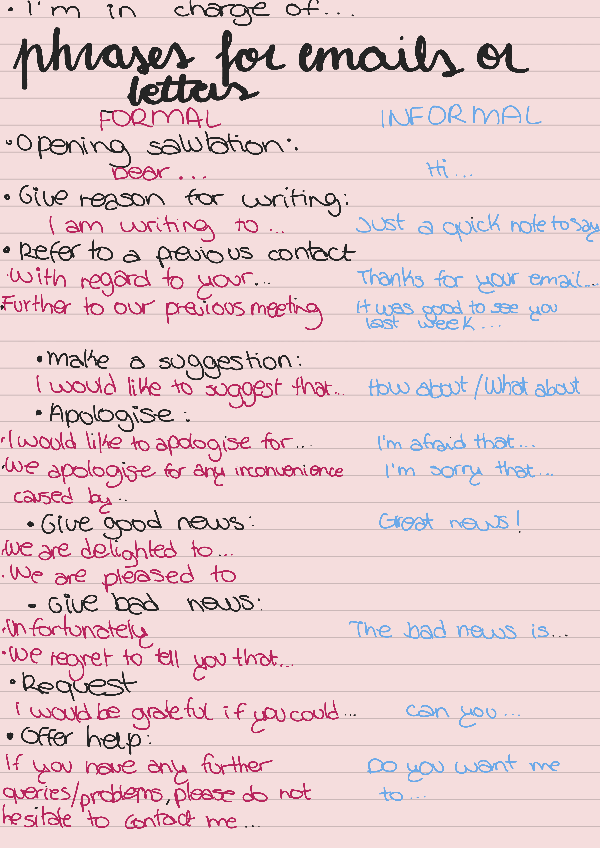 • I'm in charge of...
phrases for emails or
letters
FORMAL INFORMAL
• Opening salutation:
Dear ... Hi ...
• Give reason for writing:
I am writing to ... Just a quick note to say
• Refer to a previous contact
• With regard to your... Thanks for your email...
• Further to our previous meeting It was good to see you
last week ...
• Make a suggestion:
I would like to suggest that... How about /What about
• Apologise :
• I would like to apologise for... I'm afraid that...
• We apologise for any inconvenience I'm sorry that...
caused by ...
• Give good news: Great news!
• We are delighted to ...
• We are pleased to
• Give bad news:
• Unfortunately The bad news is...
• We regret to tell you that...
• Request
I would be grateful if you could ... can you ...
• Offer help:
If you have any further Do you want me
queries/problems, please do not to ...
hesitate to contact me ...